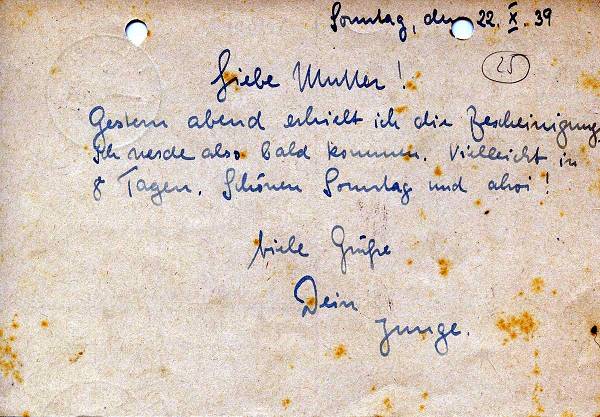 Sonntag, den 22. X. 39
25
Liebe Mutter!
Gestern abend erhielt ich die Bescheinigung.
Ich werde also bald kommen. Vielleicht in
8 Tagen. Schönen Sonntag und ahoi!
Viele Grüße
Dein
Junge.